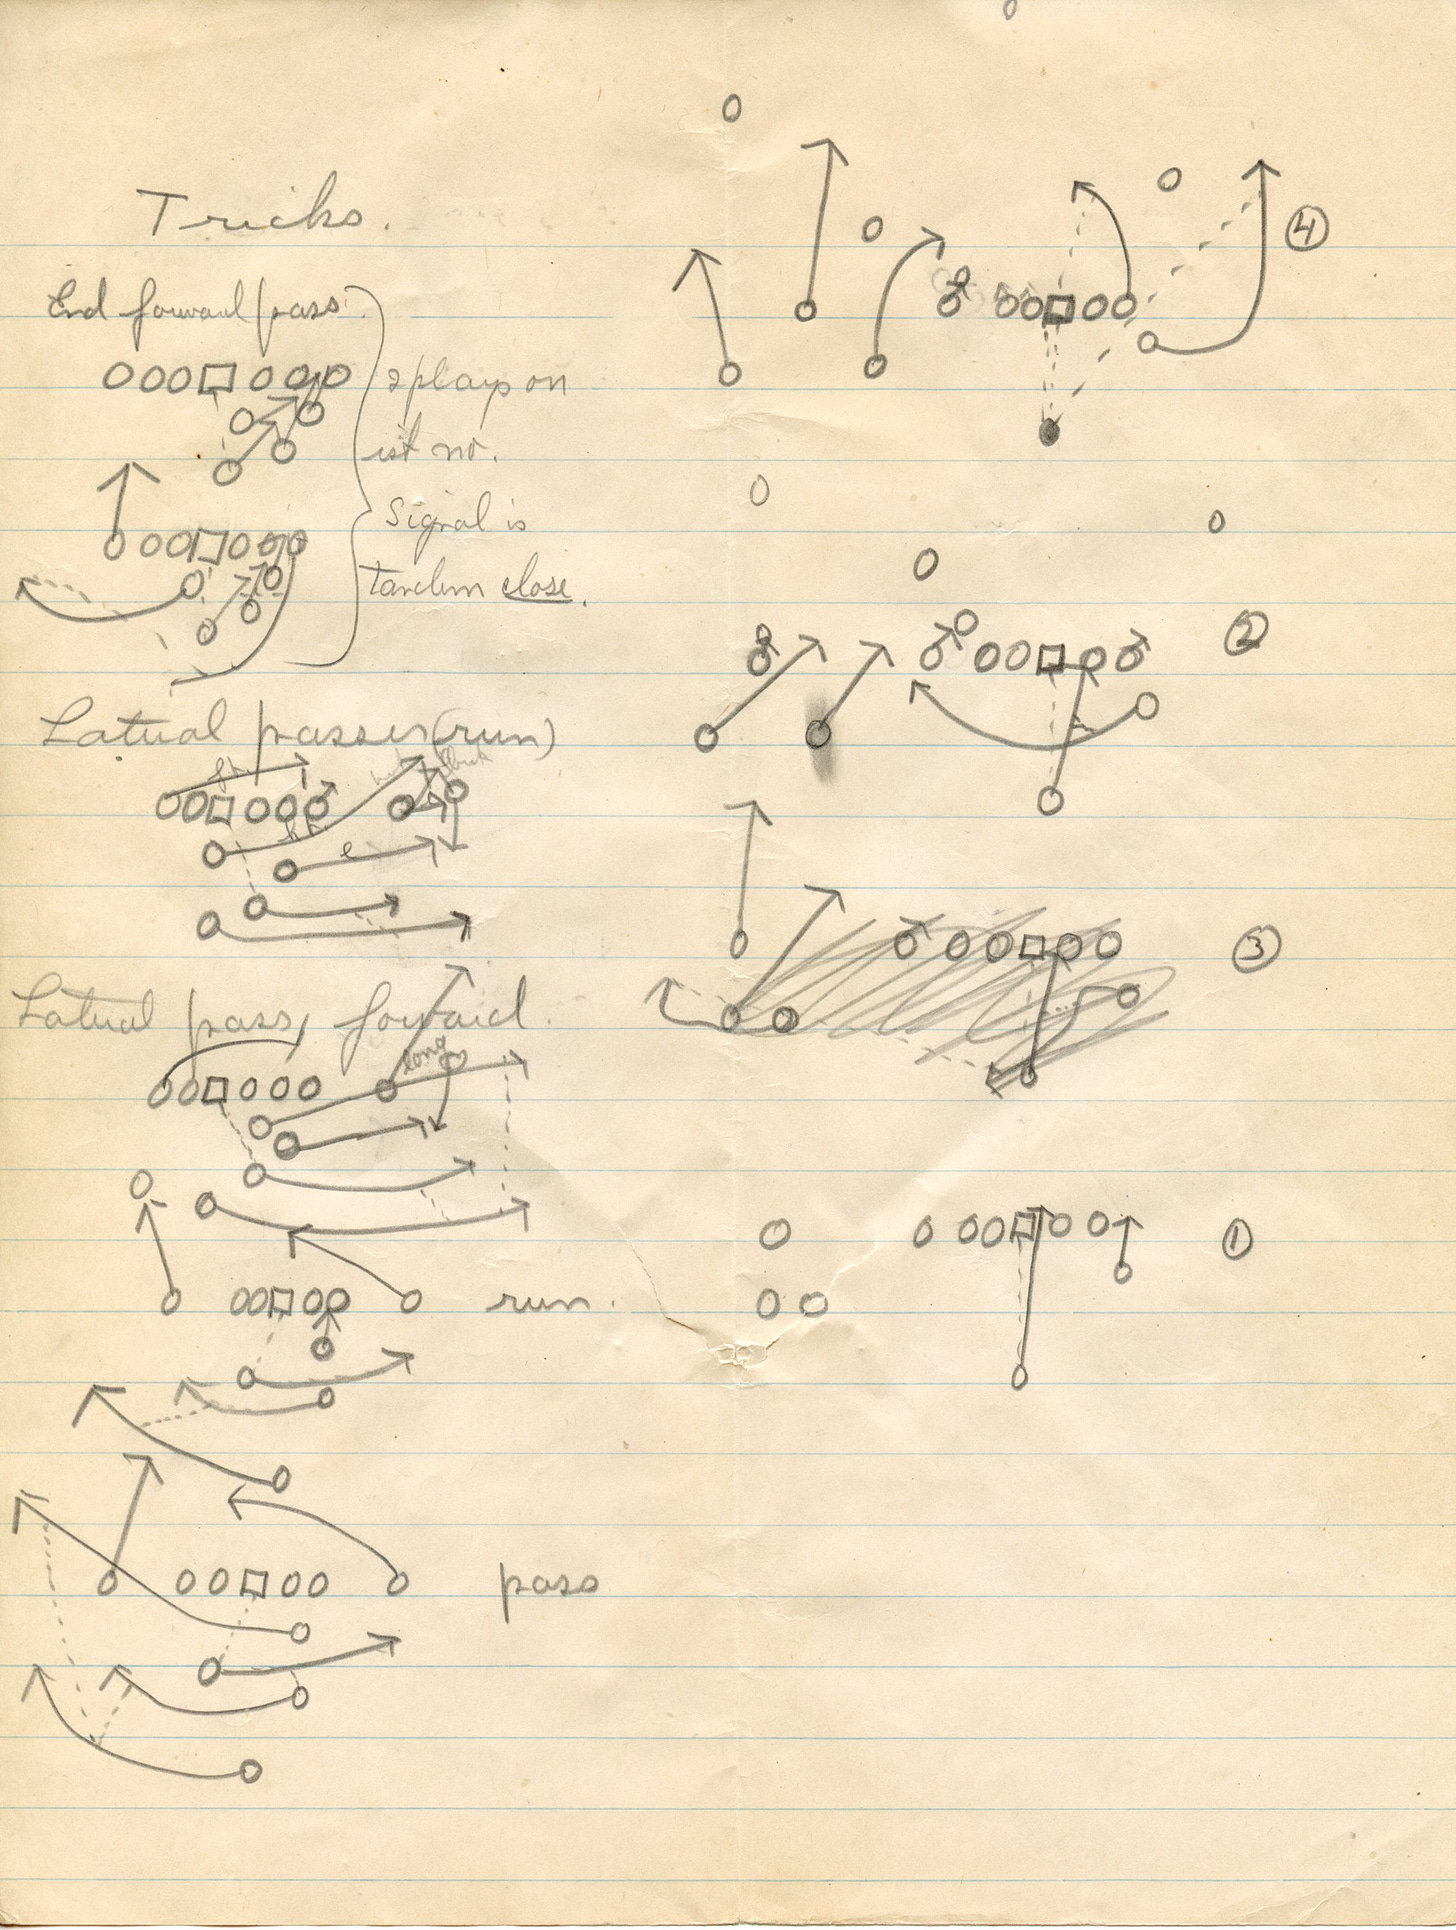 Tricks.
End forward pass
2 plays on
1st no.
Signal is
tandem close.
Latual passes (run)
e
Latual pass, forward.
long
run.
pass
4
2
3
1